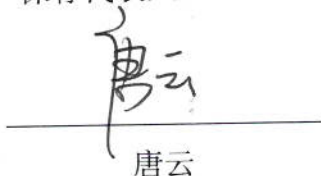 唐云
唐云